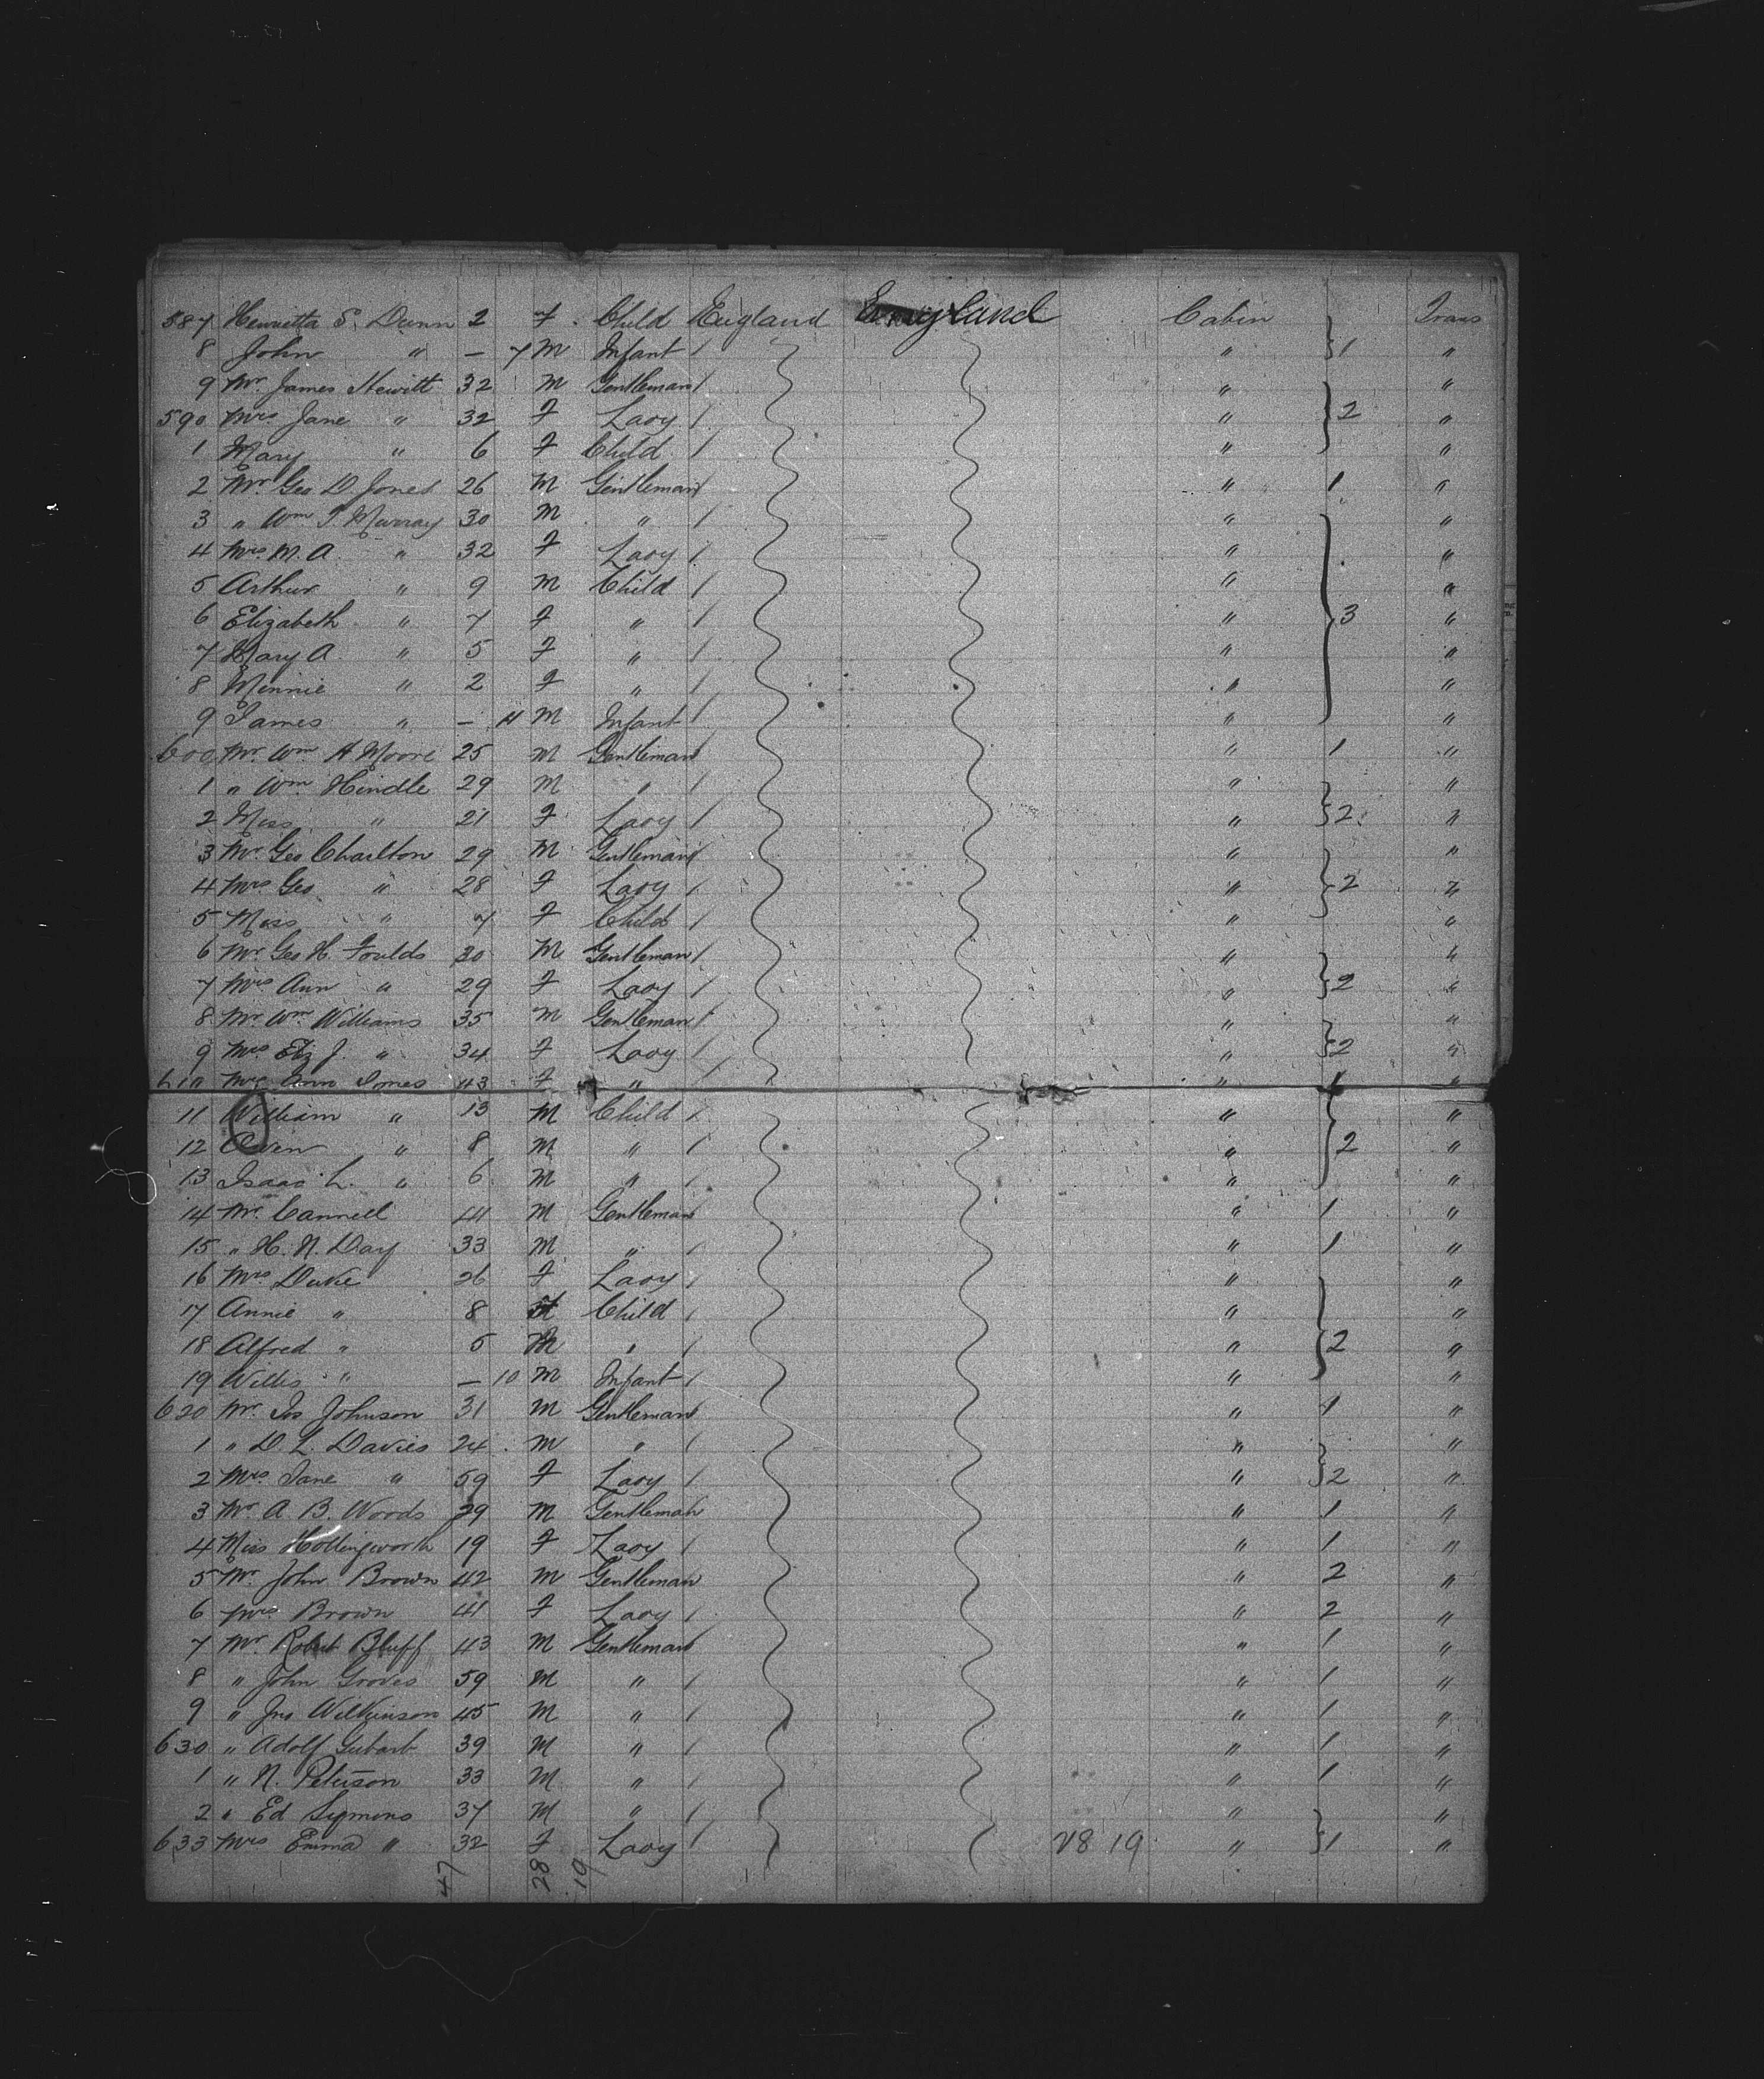 587 Henrietta S. Dunn 2 F. Child England England Cabin Trans
8 John " — 7 M Infant / " } 1 "
9 Mr. James Hewitt 32 M Gentleman / " "
590 Mrs Jane " 32 F Lady / " } 2 "
1 Mary " 6 F Child / " "
2 Mr. Geo D Jones 26 M Gentleman / " 1 "
3 " Wm T. Murray 30 M " / " "
4 Mrs. M. A. " 32 F Lady / " "
5 Arthur " 9 M Child / " "
6 Elizabeth " 7 F " / " } 3 "
7 Mary A " 5 F " / " "
8 Minnie " 2 F " / " "
9 James " — 11 M Infant / " "
600 Mr. Wm A Moore 25 M Gentleman / " 1 "
1 " Wm Hindle 29 M " / " "
2 Miss " 21 F Lady / " } 2 "
3 Mr. Geo Charlton 29 M Gentleman / " "
4 Mrs Geo " 28 F Lady / " } 2 "
5 Miss " 7 F Child / " "
6 Mr. Geo H. Foulds 30 M Gentleman / " "
7 Mrs Ann " 29 F Lady / " } 2 "
8 Mr Wm Williams 35 M Gentleman / " "
9 Mrs Eliz J. " 34 F Lady / " } 2 "
610 Mrs Ann Jones 43 F " " 1 "
11 William " 13 M Child / " "
12 Owen " 8 M " / " } 2 "
13 Isaac L. " 6 M " / " "
14 Mr. Cannell 41 M Gentleman / " 1 "
15 " H. N. Day 33 M " / " 1 "
16 Mrs Duke 26 F Lady / " "
17 Annie " 8 Child / " "
18 Alfred " 5 M " / " } 2 "
19 Willis " — 10 M Infant / " "
620 Mr. Jos Johnson 31 M Gentleman / " 1 "
1 " D. L. Davies 24 M " / " "
2 Mrs. Jane " 59 F Lady / " } 2 "
3 Mr A B. Woods 29 M Gentleman " 1 "
4 Miss Hollingworth 19 F Lady / " 1 "
5 Mr. John Brown 42 M Gentleman " 2 "
6 Mrs Brown 41 F Lady / " 2 "
7 Mr. Robert Bluff 43 M Gentleman " 1 "
8 " John Groves 59 M " / " 1 "
9 " Jno Wilkinson 45 M " / " 1 "
630 " Adolf 39 M " / " 1 "
1 " N. Peterson 33 M " / " 1 "
2 " Ed Symons 37 M " / " "
633 Mrs Emma " 32 F Lady / 28 19 " } 1 "
47 28 19